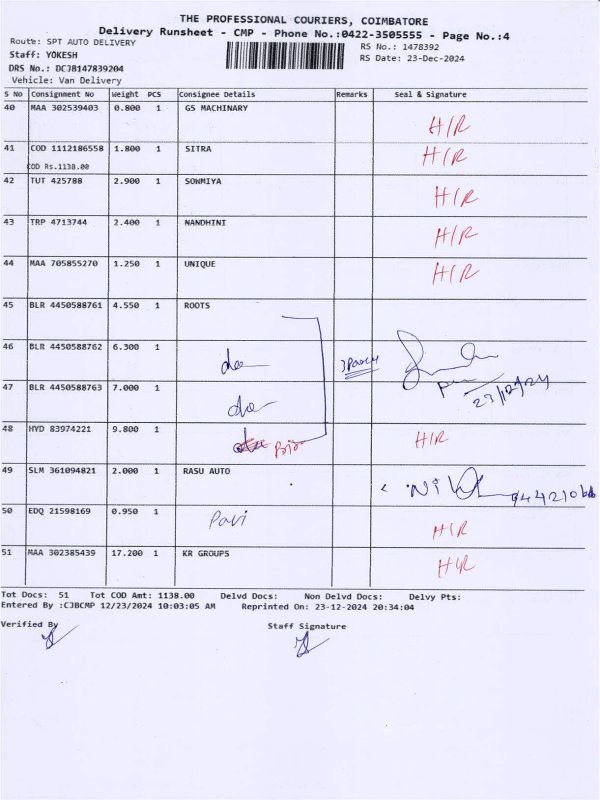 THE PROFESSIONAL COURIERS, COIMBATORE
Delivery Runsheet - CMP - Phone No.:0422-3505555 - Page No.:4
Route: SPT AUTO DELIVERY
RS No.: 1478392
Staff: YOKESH
RS Date: 23-Dec-2024
DRS No.: DCJB147839204
Vehicle: Van Delivery
S No Consignment No Weight PCS Consignee Details Remarks Seal & Signature
40 MAA 302539403 0.800 1 GS MACHINARY H/R
41 COD 1112186558 1.800 1 SITRA H/R
COD Rs.1138.00
42 TUT 425788 2.900 1 SOWMIYA H/R
43 TRP 4713744 2.400 1 NANDHINI H/R
44 MAA 705855270 1.250 1 UNIQUE H/R
45 BLR 4450588761 4.550 1 ROOTS
46 BLR 4450588762 6.300 1 do
23/12/24
47 BLR 4450588763 7.000 1 do
48 HYD 83974221 9.800 1 H/R
49 SLM 361094821 2.000 1 RASU AUTO
50 EDQ 21598169 0.950 1 Pavi H/R
51 MAA 302385439 17.200 1 KR GROUPS H/R
Tot Docs: 51 Tot COD Amt: 1138.00 Delvd Docs: Non Delvd Docs: Delvy Pts:
Entered By :CJBCMP 12/23/2024 10:03:05 AM Reprinted On: 23-12-2024 20:34:04
Verified By
Staff Signature